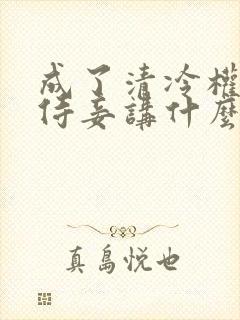 成了清冷權
侍妾講什麼
真島悦也